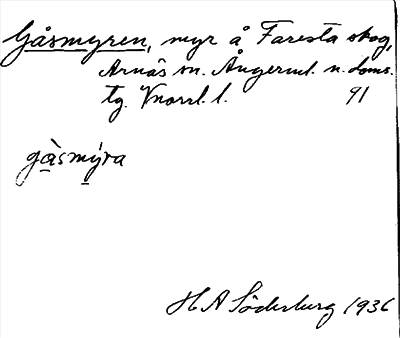 Gåsmyren, myr å Faresta skog,
Arnäs sn. Ångerml. n. doms.
tg. Vnorrl. l. 91
gàsmýra
H A Söderburg 1936